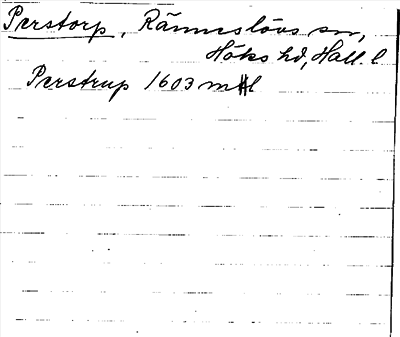 Perstorp, Ränneslövs sn,
Höks hd, Hall. l
Perstrup 1603 mHl